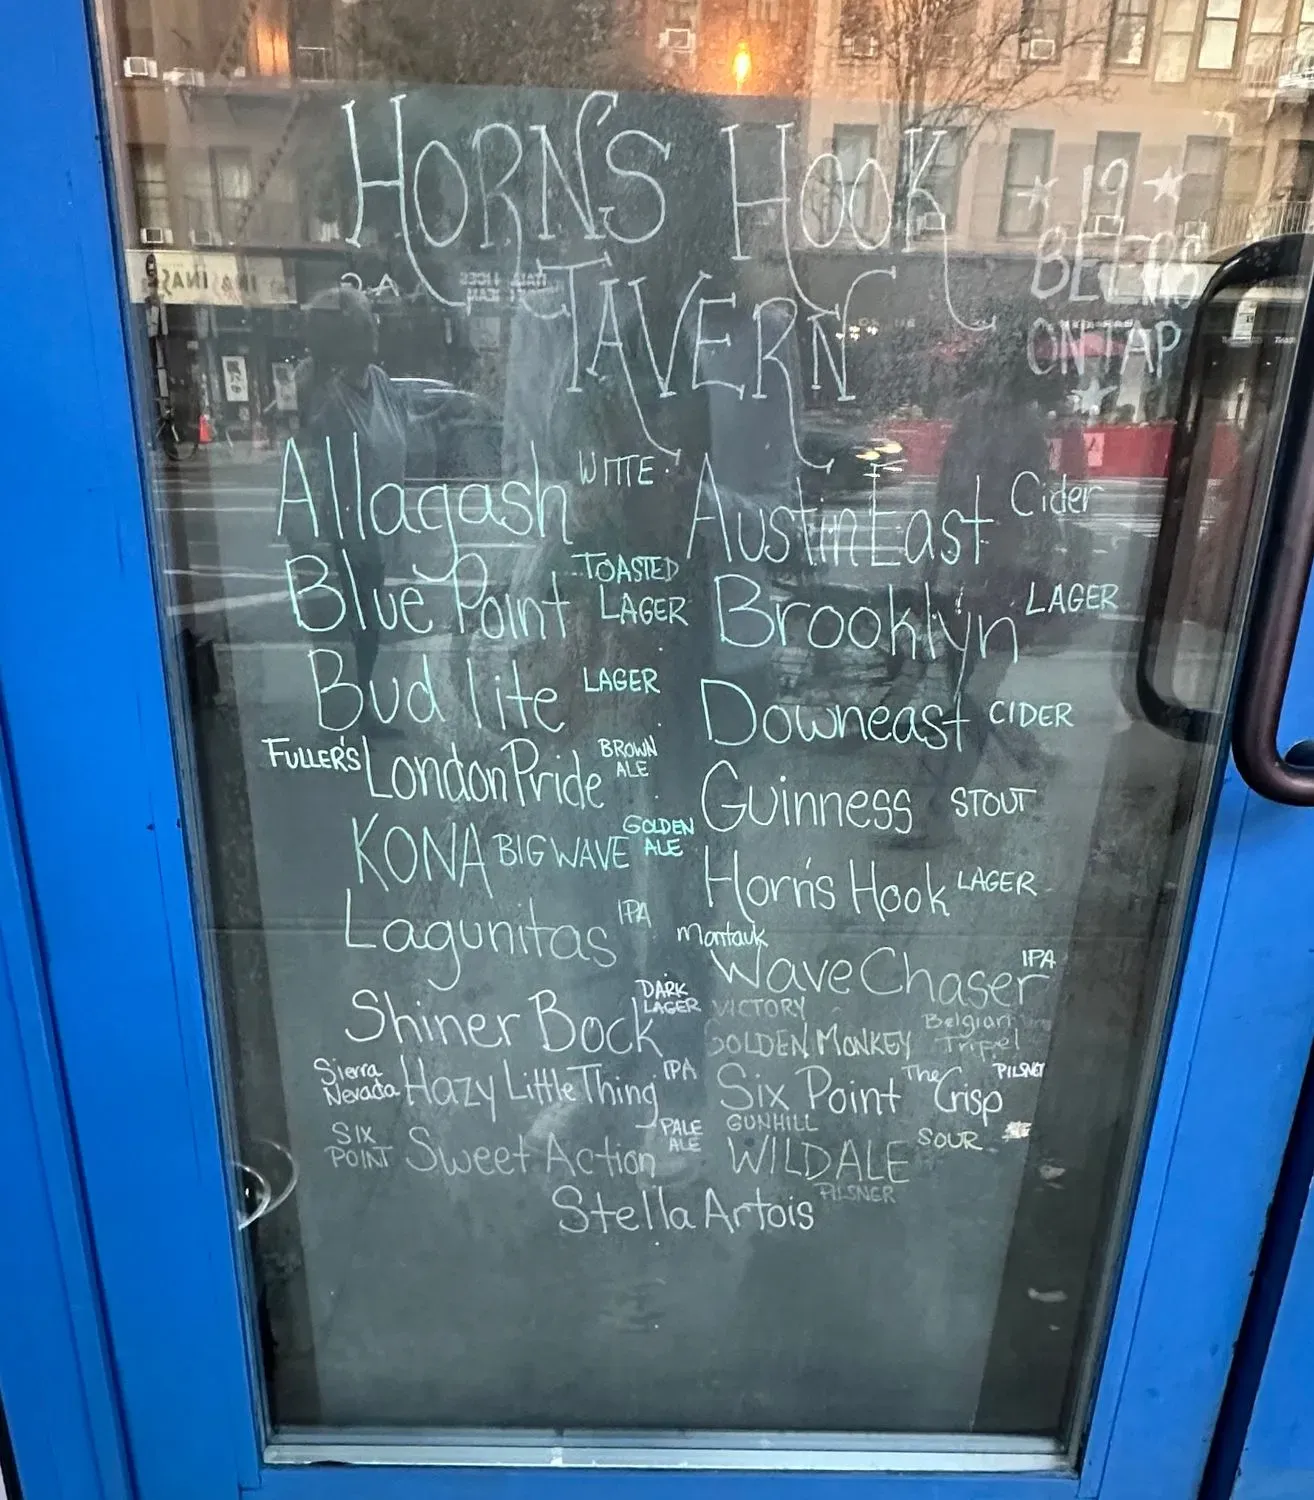 HORN'S HOOK
TAVERN
19
BEERS
ON TAP
Allagash WITTE
Blue Point TOASTED LAGER
Bud lite LAGER
FULLER'S London Pride BROWN ALE
KONA BIG WAVE GOLDEN ALE
Lagunitas IPA
Shiner Bock DARK LAGER
Sierra Nevada Hazy Little Thing IPA
SIX POINT Sweet Action PALE ALE
Austin East Cider
Brooklyn LAGER
Downeast CIDER
Guinness STOUT
Horn's Hook LAGER
Montauk Wave Chaser IPA
VICTORY GOLDEN MONKEY Belgian Tripel
Six Point The Crisp PILSNER
GUNHILL WILD ALE SOUR
Stella Artois PILSNER